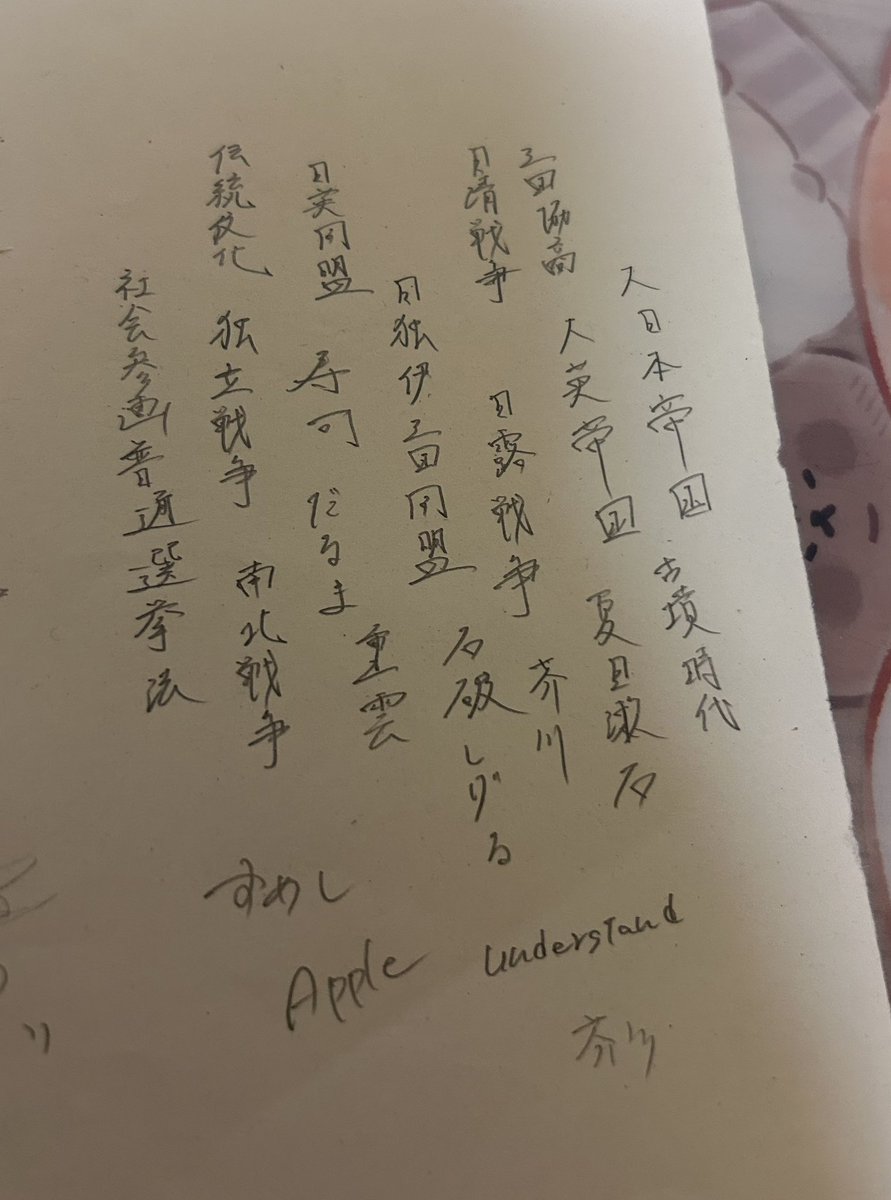 大日本帝国 古墳時代
三国協商 大英帝国 夏目漱石
日清戦争 日露戦争 芥川
日独伊三国同盟 石破しげる
日英同盟 寿司 だるま 重雲
伝統文化 独立戦争 南北戦争
社会参画普通選挙法
すめし
Apple understand
芥川